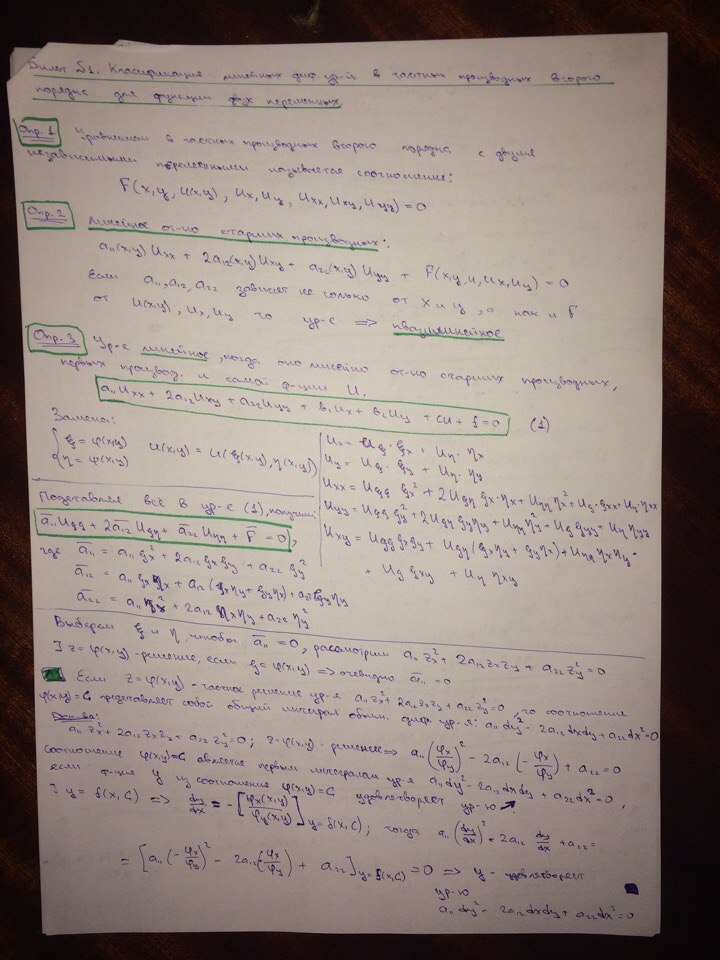 Билет 51. Классификация линейных диф. ур-й в частных производных второго
порядка для функции двух переменных
Опр. 1 Уравнением в частных производных второго порядка с двумя
независимыми переменными называется соотношение:
F(x,y,u(x,y), ux, uy, uxx, uxy, uyy)=0
Опр. 2 линейное от-но старших производных:
a11(x,y)uxx + 2a12(x,y)uxy + a22(x,y)uyy + F(x,y,u,ux,uy) = 0
Если a11,a12,a22 зависят не только от x и y, а как и F
от u(x,y), ux,uy то ур-е => квазилинейное
Опр. 3 Ур-е линейное, когда оно линейно от-но старших производных,
первых производ. и самой ф-ции u.
a11uxx + 2a12uxy + a22uyy + b1ux + b2uy + cu + f = 0 (1)
Замена:
{ ξ = φ(x,y)
η = φ(x,y)
u(x,y) = u(ξ(x,y), η(x,y))
ux = uξ · ξx + uη · ηx
uy = uξ · ξy + uη · ηy
uxx = uξξ ξx² + 2uξη ξx·ηx + uηη ηx² + uξ·ξxx + uη ηxx
uyy = uξξ ξy² + 2uξη ξyηy + uηη ηy² + uξ ξyy + uη ηyy
uxy = uξξ ξxξy + uξη(ξxηy + ξyηx) + uηη ηxηy +
+ uξ ξxy + uη ηxy
Подставляя всё в ур-е (1), получим:
a̅11uξξ + 2a̅12uξη + a̅22uηη + F̅ = 0,
где a̅11 = a11 ξx² + 2a12 ξxξy + a22 ξy²
a̅12 = a11 ξxηx + a12(ξxηy + ξyηx) + a22ξyηy
a̅22 = a11 ηx² + 2a12 ηxηy + a22 ηy²
Выберем ξ и η, чтобы a̅11 = 0, рассмотрим a11 zx² + 2a12 zxzy + a22 zy² = 0
∃ z = φ(x,y) - решение, если ξ = φ(x,y) => очевидно a̅11 = 0
Если z = φ(x,y) - частное решение ур-я a11 zx² + 2a12 zxzy + a22 zy² = 0, то соотношение
φ(x,y) = C представляет собой общий интеграл обыкн. диф. ур-я: a11 dy² - 2a12 dxdy + a22 dx² = 0
a11 zx² + 2a12 zxzy + a22 zy² = 0; z = φ(x,y) - решение => a11(-φx/φy)² - 2a12(-φx/φy) + a22 = 0
соотношение φ(x,y) = C является первым интегралом ур-я a11 dy² - 2a12 dxdy + a22 dx² = 0,
если ф-ция y из соотношения φ(x,y) = C удовлетворяет ур-ю
∃ y = f(x,C) => dy/dx = -[φx(x,y)/φy(x,y)] y=f(x,C); тогда a11(dy/dx)² - 2a12 dy/dx + a22 =
= [a11(-φx/φy)² - 2a12(-φx/φy) + a22] y=f(x,C) = 0 => y - удовлетворяет
ур-ю
a11 dy² - 2a12 dxdy + a22 dx² = 0